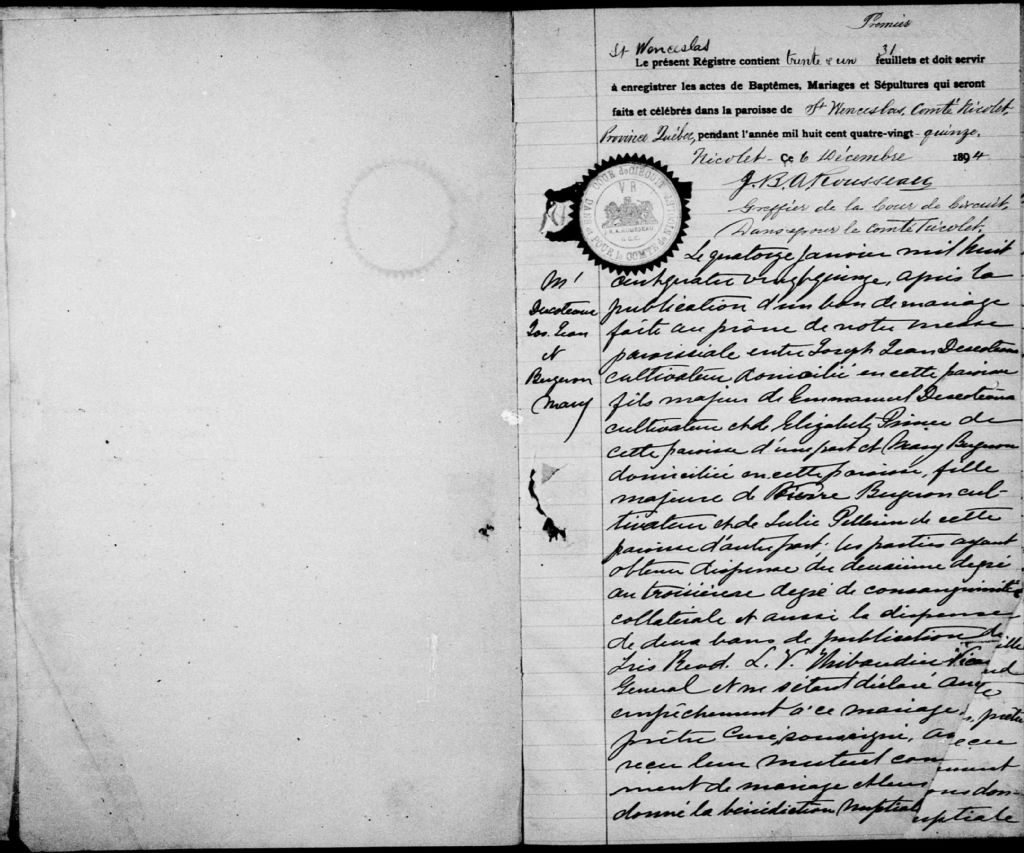 Premier
St Wenceslas
Le présent Régistre contient trente & un 31 feuillets et doit servir
à enregistrer les actes de Baptêmes, Mariages et Sépultures qui seront
faits et célébrés dans la paroisse de St Wenceslas, Comté Nicolet,
Province Québec, pendant l'année mil huit cent quatre-vingt-quinze.
Nicolet - Ce 6 Décembre 1894
J. B. A. Rousseau
Greffier de la Cour de Circuit,
Dans & pour le comté Nicolet.
COUR de CIRCUIT
V R
DANS et POUR le COMTE de
M1
Descoteaux
Jos. Jean
&
Bergeron
Mary
Le quatorze Janvier mil huit
cent quatre vingt quinze, après la
publication d'un ban de mariage
faite au prône de notre messe
paroissiale entre Joseph Jean Descoteaux
cultivateur domicilié en cette paroisse
fils majeur de Emmanuel Descoteaux
cultivateur et de Elizabeth Prince de
cette paroisse d'une part et Mary Bergeron
domiciliée en cette paroisse, fille
majeure de Pierre Bergeron cul-
tivateur et de Julie Pellerin de cette
paroisse d'autre part; les parties ayant
obtenu dispense du deuxième degré
au troisième degré de consanguinité
collatérale et aussi la dispense
de deux bans de publication de
Très Revd. L. V. Thibaudier Vicai
General et ne s'étant déclaré aucu
empêchement à ce mariage,
prêtre Curé, soussigné, av
reçu leur mutuel con
ment de mariage et leur
donné la bénédiction Nuptial
ille
nd
te
, prêtre
eçu
ement
ous don-
uptiale